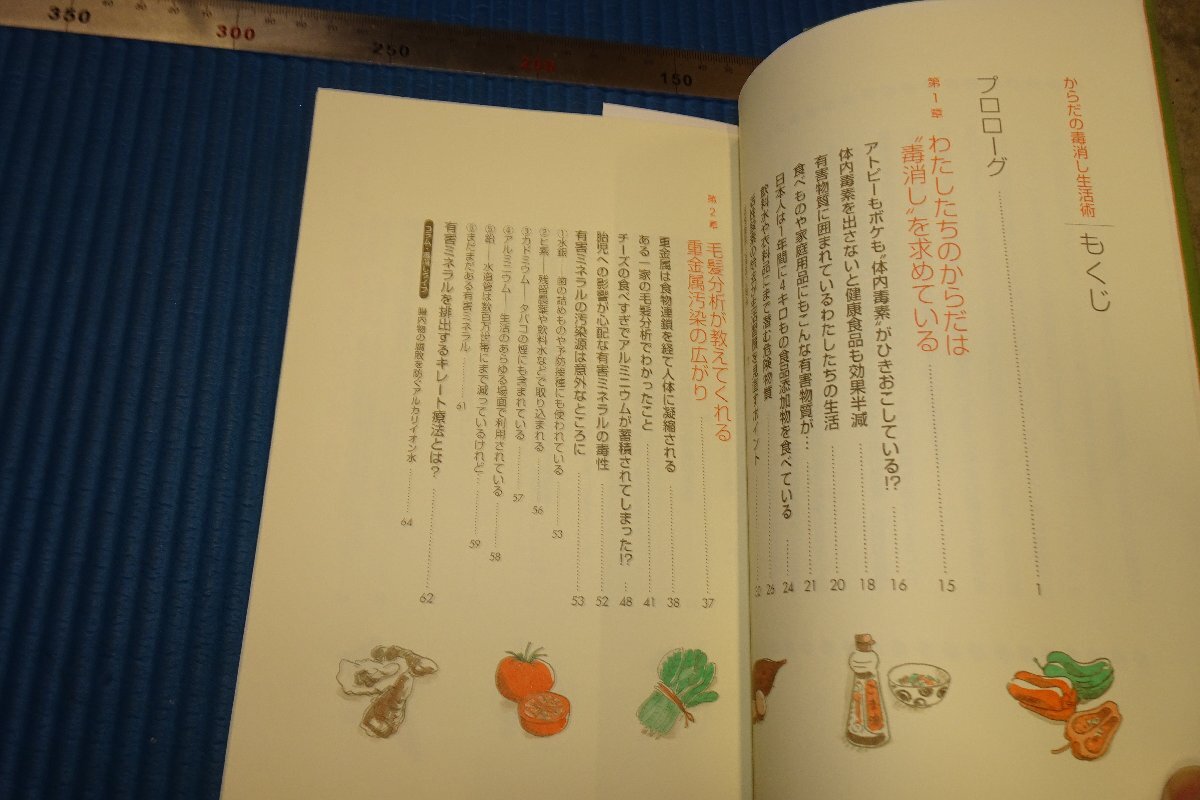 からだの毒消し生活術 もくじ
プロローグ 1
第1章 わたしたちのからだは
“毒消し”を求めている 15
アトピーもボケも“体内毒素”がひきおこしている!? 16
体内毒素を出さないと健康食品も効果半減 18
有害物質に囲まれているわたしたちの生活 20
食べものや家庭用品にもこんな有害物質が… 21
日本人は1年間に4キロもの食品添加物を食べている 24
飲料水や衣料品にまで潜む危険物質 26
第2章 毛髪分析が教えてくれる
重金属汚染の広がり 37
重金属は食物連鎖を経て人体に凝縮される 38
ある一家の毛髪分析でわかったこと 41
チーズの食べすぎでアルミニウムが蓄積されてしまった!? 48
胎児への影響が心配な有害ミネラルの毒性 52
有害ミネラルの汚染源は意外なところに 53
①水銀——歯の詰めものや予防接種にも使われている 53
②ヒ素——残留農薬や飲料水などで取り込まれる 56
③カドミウム——タバコの煙にも含まれている 57
④アルミニウム——生活のあらゆる場面で利用されている 58
⑤鉛——水道管は数百万世帯にまで減っているけれど 59
⑥まだまだある有害ミネラル 61
有害ミネラルを排出するキレート療法とは? 62
腸内物の腐敗を防ぐアルカリイオン水 64
350
300
250
200
150